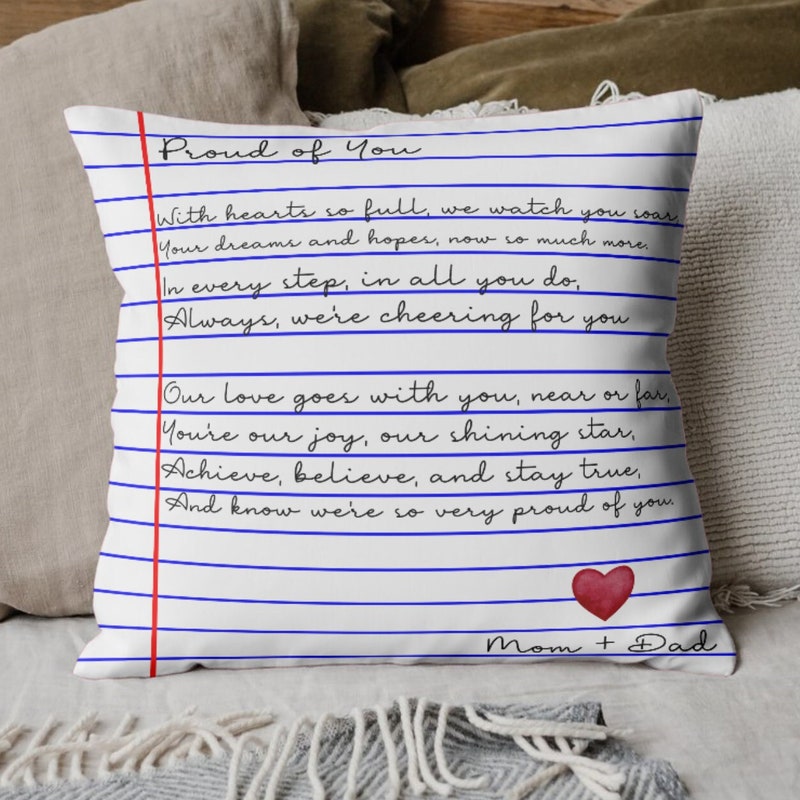 Proud of You
With hearts so full, we watch you soar,
Your dreams and hopes, now so much more.
In every step, in all you do,
Always, we're cheering for you
Our love goes with you, near or far,
You're our joy, our shining star,
Achieve, believe, and stay true,
And know we're so very proud of you.
Mom + Dad